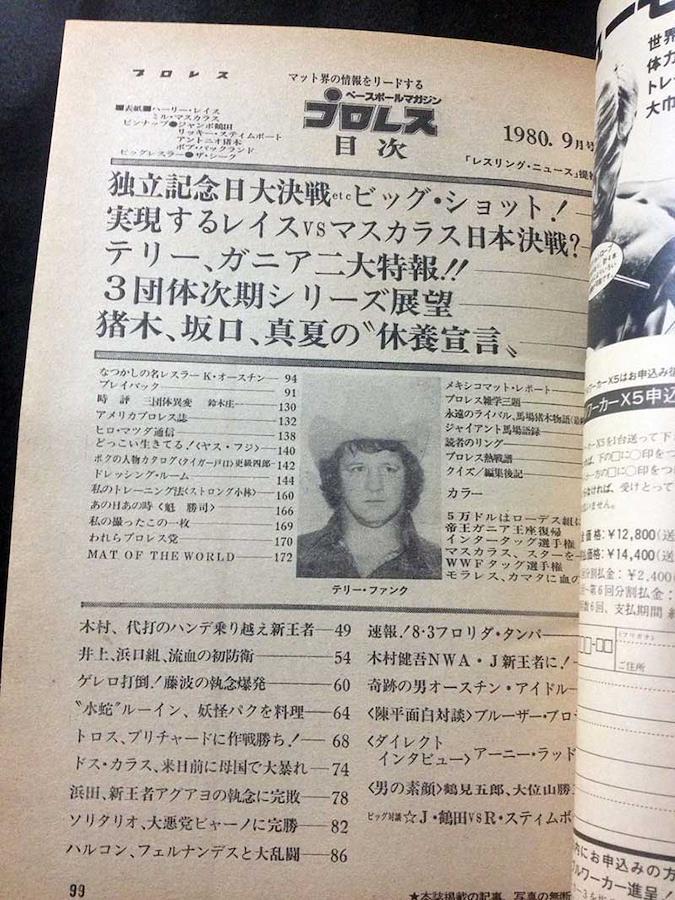 プロレス
マット界の情報をリードする
ベースボールマガジン
プロレス
目次
1980.9月号
「レスリング・ニュース」提
■表紙■ハーリー・レイス
ミル・マスカラス
ピンナップ●ジャンボ鶴田
リッキー・スティムボート
アントニオ猪木
ボブ・バックランド
ビッグレスラー●ザ・シーク
独立記念日大決戦etcビッグ・ショット!
実現するレイスVSマスカラス日本決戦?
テリー、ガニア二大特報!!
3団体次期シリーズ展望
猪木、坂口、真夏の〝休養宣言〟
なつかしの名レスラー K・オースチン―94
プレイバック―91
時評 三団体異変 鈴木庄一―130
アメリカプロレス誌―132
ヒロ・マツダ通信―138
どっこい生きてる!〈ヤス・フジ〉―140
ボクの人物カタログ〈タイガー戸口〉更級四郎―142
ドレッシング・ルーム―144
私のトレーニング法〈ストロング小林〉―160
あの日あの時〈魁 勝司〉―166
私の撮ったこの一枚―169
われらプロレス党―170
MAT OF THE WORLD―172
テリー・ファンク
メキシコマット・レポート
プロレス雑学三題
永遠のライバル、馬場猪木物語
ジャイアント馬場語録
読者のリング
プロレス熱戦譜
クイズ/編集後記
カラー
5万ドルはローデス組に
帝王ガニア王座復帰
インタータッグ選手権
マスカラス、スターを
WWFタッグ選手権
モラレス、カマタに血の
木村、代打のハンデ乗り越え新王者―49
井上、浜口組、流血の初防衛―54
ゲレロ打倒!藤波の執念爆発―60
〝水蛇〟ルーイン、妖怪パクを料理―64
トロス、プリチャードに作戦勝ち!―68
ドス・カラス、来日前に母国で大暴れ―74
浜田、新王者アグアヨの執念に完敗―78
ソリタリオ、大悪党ビヤーノに完勝―82
ハルコン、フェルナンデスと大乱闘―86
速報!8・3フロリダ・タンパ
木村健吾NWA・J新王者に!
奇跡の男オースチン・アイドル
〈陳平面白対談〉ブルーザー・ブロ
〈ダイレクト
インタビュー〉アーニー・ラッド
〈男の素顔〉鶴見五郎、大位山勝三
ビッグ対談☆J・鶴田VSR・スティムボ
99
★本誌掲載の記事、写真の無断
世界
体力
トレ
大巾
ワーカーX5はお申込み後
ワーカーX5申込
価格:¥12,800(送
価格:¥14,400(送
分割払金:¥2,400
―第6回分割払金:
数6回、支払期間
〈フリガナ〉
ご住所
内にお申込みの方
ブルワーカー進呈!